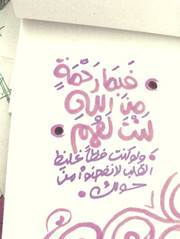 فبما رحمةٍ
من الله
لنت لهم
ولو كنت فظاً غليظ
القلب لانفضوا من
حولك.